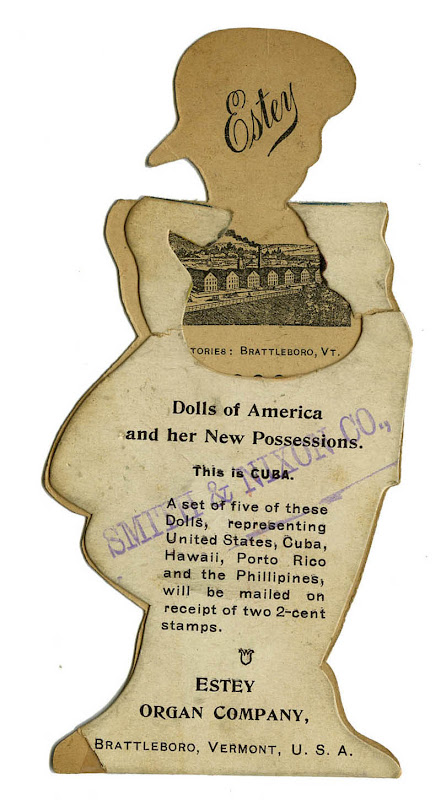 Estey
TORIES: BRATTLEBORO, VT.
Dolls of America
and her New Possessions.
This is CUBA.
SMITH & NIXON CO.,
A set of five of these
Dolls, representing
United States, Cuba,
Hawaii, Porto Rico
and the Phillipines,
will be mailed on
receipt of two 2-cent
stamps.
ESTEY
ORGAN COMPANY,
BRATTLEBORO, VERMONT, U. S. A.